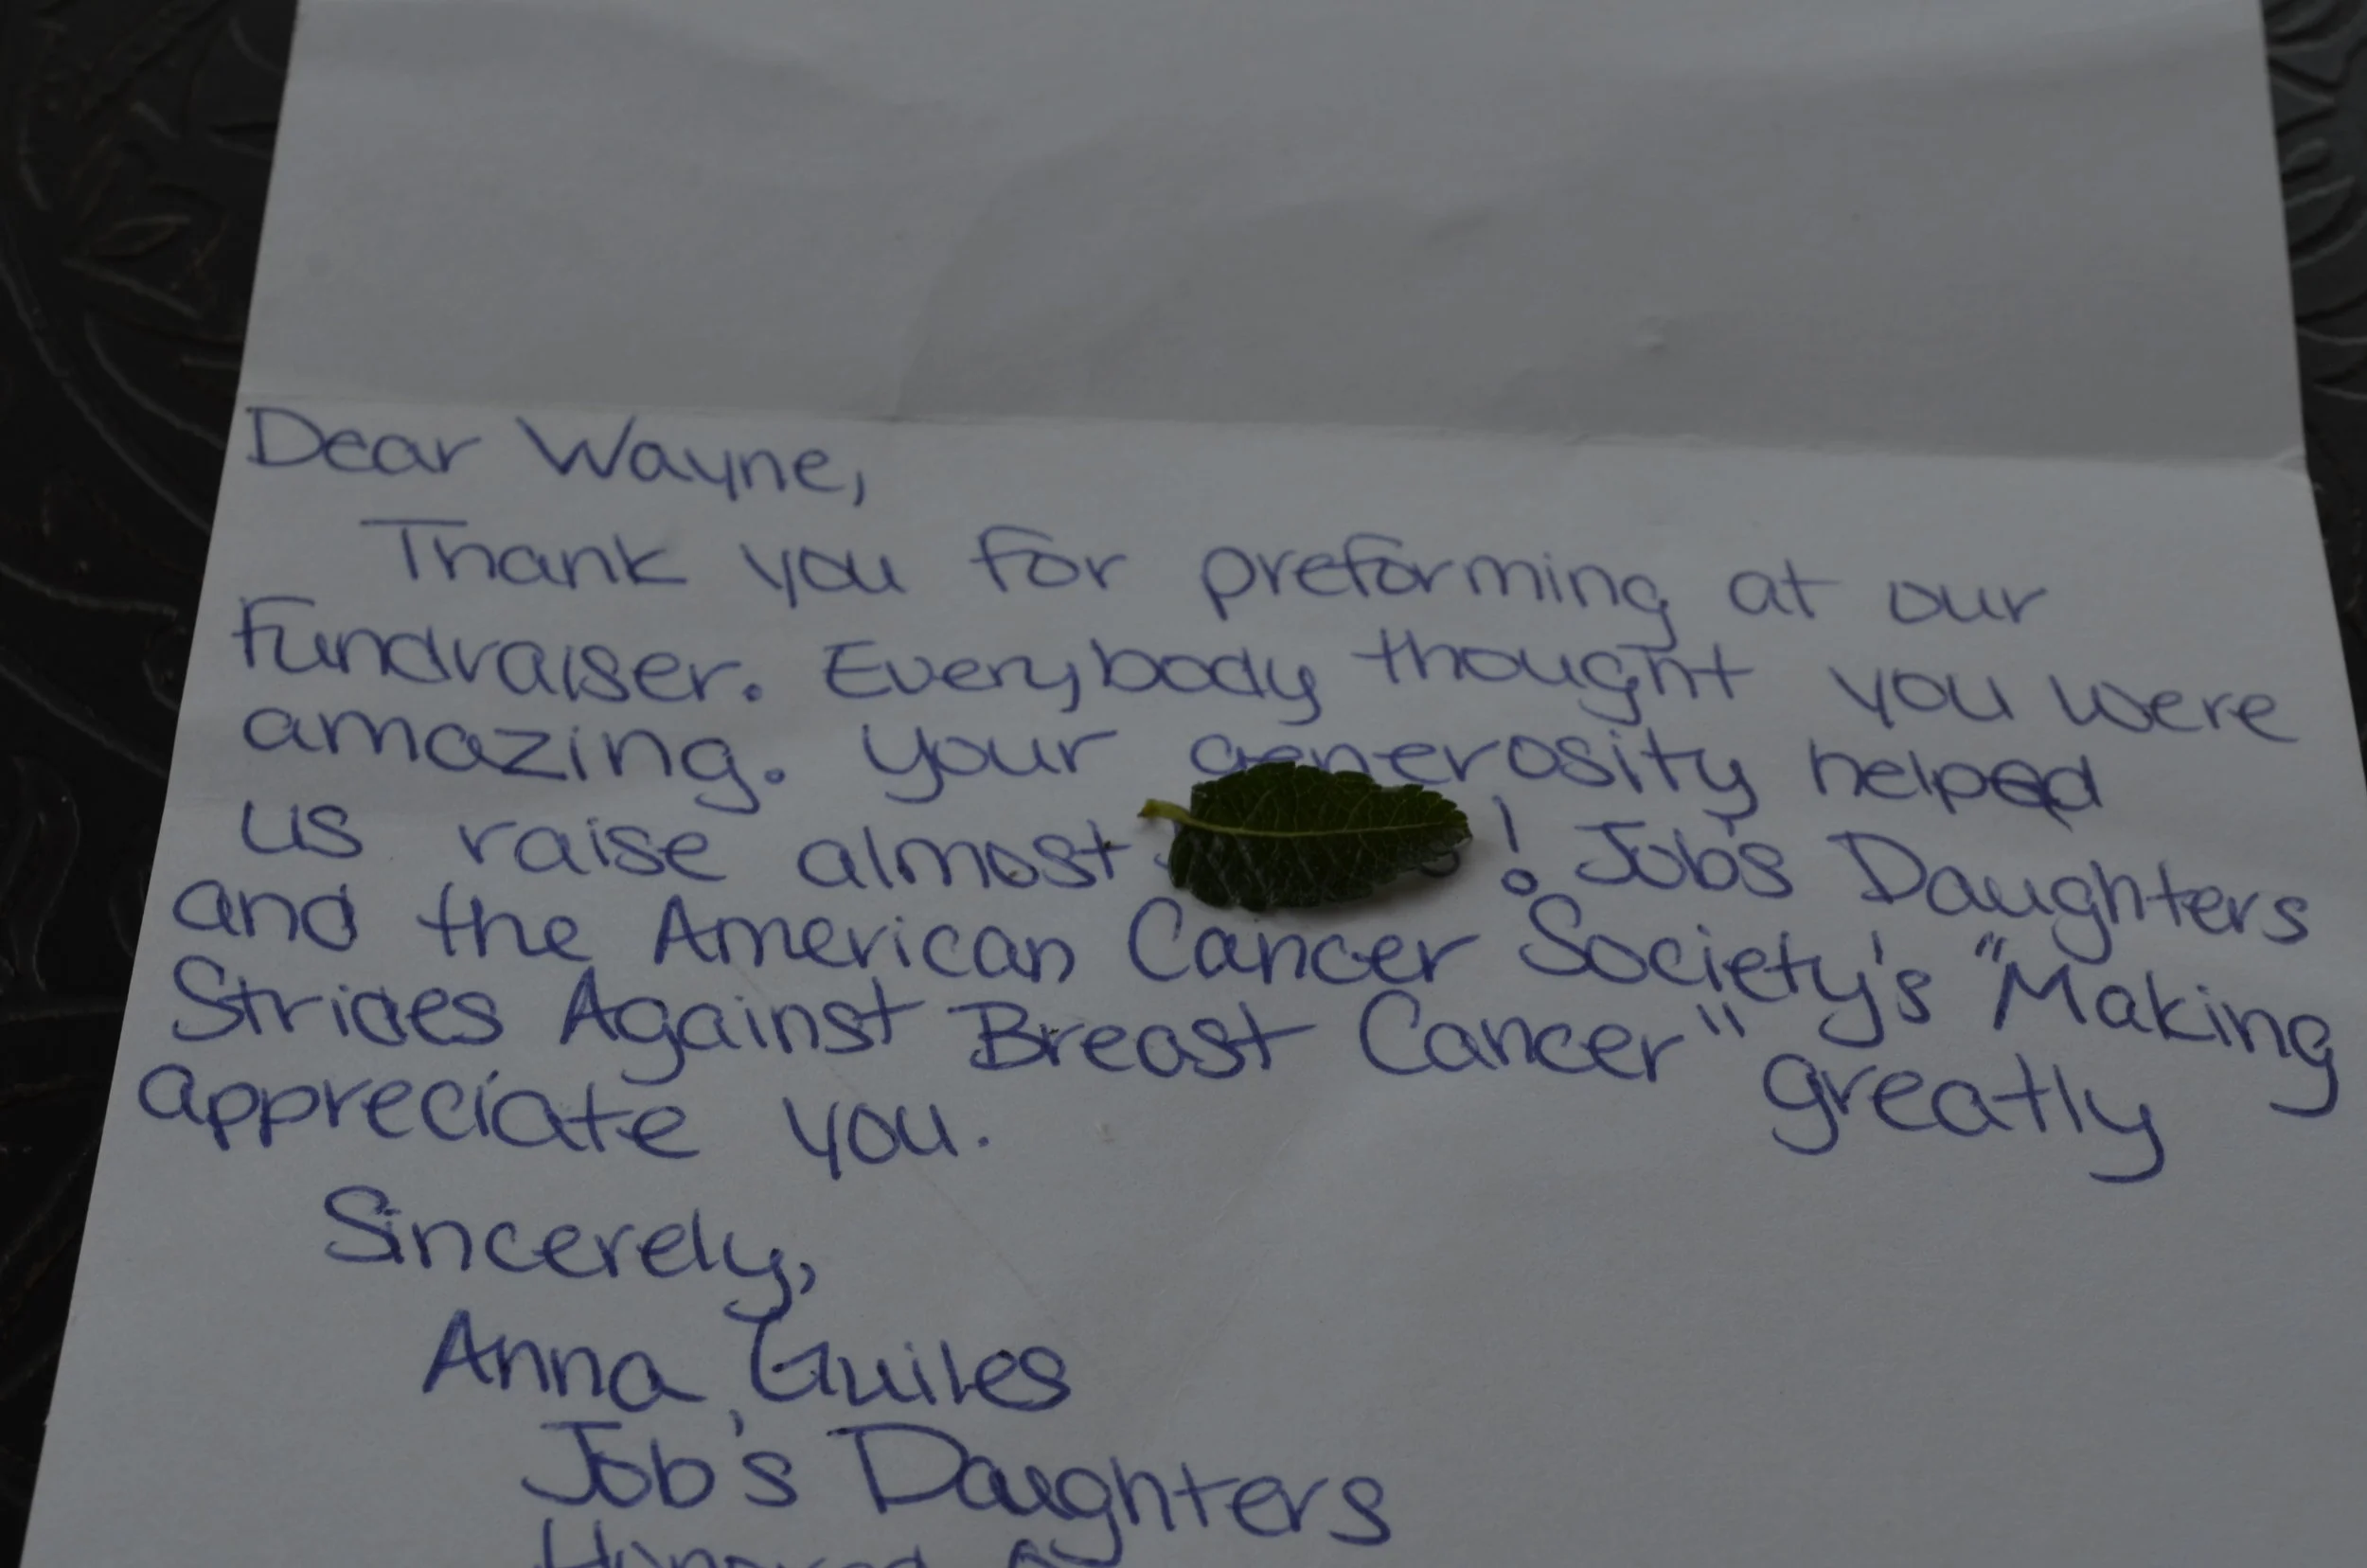 Dear Wayne,
Thank you for preforming at our
fundraiser. Everybody thought you were
amazing. Your generosity helped
us raise almost ! Job's Daughters
and the American Cancer Society's "Making
Strides Against Breast Cancer" greatly
appreciate you.
Sincerely,
Anna Guiles
Job's Daughters
Honored